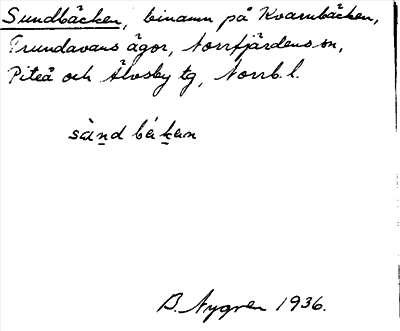 Sundbäcken, binamn på Kvarnbäcken,
Trundavans ägor, Norrfjärdens sn,
Piteå och Älvsby tg, Norrb. l.
sànd bákan
B. Nygren 1936.